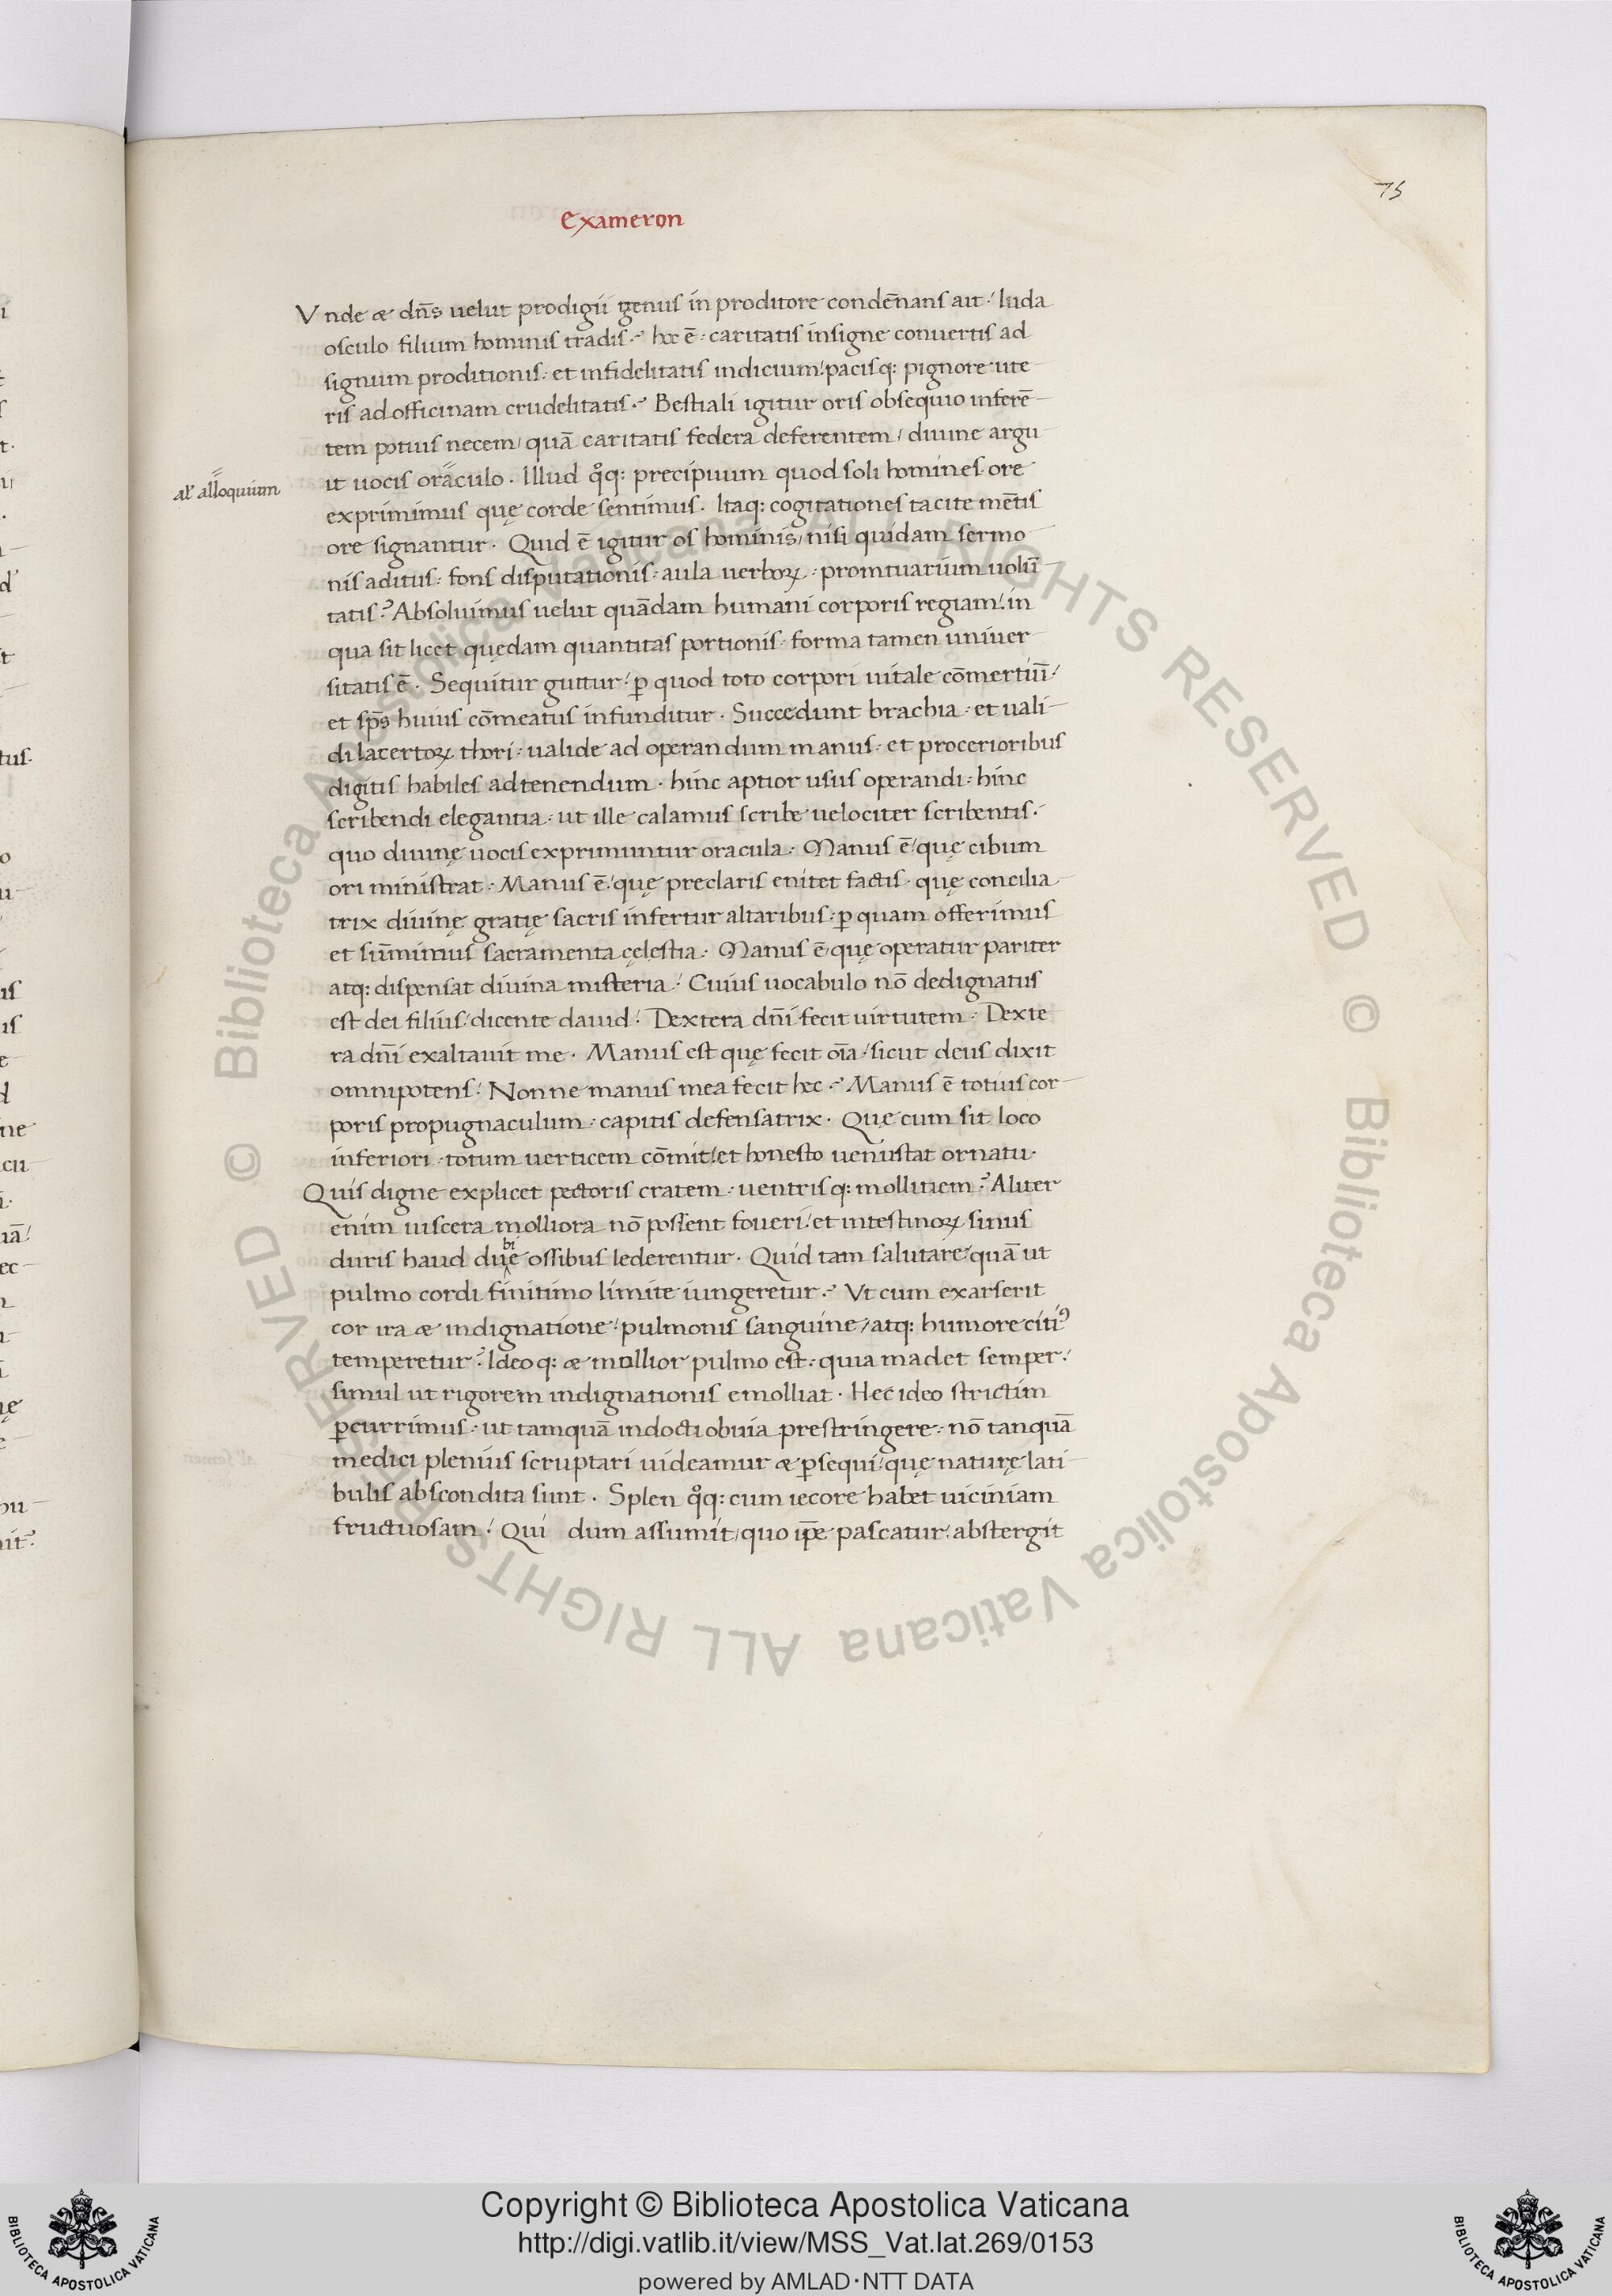 75
Exameron
Vnde & dn̄s uelut prodigii genus in proditore condēnans ait: Iuda
osculo filium hominis tradis? hoc ē: caritatis insigne conuertis ad
signum proditionis: et infidelitatis indicium: pacisq: pignore ute
ris ad officinam crudelitatis? Bestiali igitur oris obsequio inferē
tem potius necem, quā caritatis federa deferentem, diuine argu
it uocis oraculo. Illud qͦq: precipuum quod soli homines ore
al' alloquium
exprimimus quę corde sentimus. Itaq: cogitationes tacite mētis
ore signantur. Quid ē igitur os hominis, nisi quidam sermo
nis aditus: fons disputationis: aula uerboꝝ: promtuarium uolū
tatis? Absoluimus uelut quādam humani corporis regiam: in
qua sit licet quędam quantitas portionis: forma tamen uniuer
sitatis ē. Sequitur guttur: ꝑ quod toto corpori uitale cōmertiū:
et sp̄s huius cōmeatus infunditur. Succedunt brachia: et uali
di lacertoꝝ thori: ualide ad operandum manus: et procerioribus
digitis habiles ad tenendum. hinc aptior usus operandi: hinc
scribendi elegantia: ut ille calamus scribe uelociter scribentis:
quo diuinę uocis exprimuntur oracula. Manus ē: quę cibum
ori ministrat. Manus ē: quę preclaris enitet factis: quę concilia
trix diuinę gratię sacris infertur altaribus: ꝑ quam offerimus
et sūmimus sacramenta cęlestia. Manus ē, quę operatur pariter
atq: dispensat diuina misteria: Cuius uocabulo nō dedignatus
est dei filius: dicente dauid: Dextera dn̄i fecit uirtutem: Dexte
ra dn̄i exaltauit me. Manus est quę fecit oīa: sicut deus dixit
omnipotens: Nonne manus mea fecit hęc? Manus ē totius cor
poris propugnaculum: capitis defensatrix. Quę cum sit loco
inferiori: totum uerticem cōmit: et honesto uenustat ornatu.
Quis digne explicet pectoris cratem: uentrisq: mollitiem? Aliter
enim uiscera molliora nō possent foueri: et intestinoꝝ sinus
bi
duris haud due ossibus lederentur. Quid tam salutare: quā ut
pulmo cordi finitimo limite iungeretur? Vt cum exarserit
cor ira & indignatione: pulmonis sanguine, atq: humore citiꝰ
temperetur? Ideoq: & mollior pulmo est: quia madet semper:
simul ut rigorem indignationis emolliat. Hec ideo strictim
ꝑcurrimus: ut tamquā indocti obuia prestringere: nō tanquā
medici plenius scruptari uideamur & ꝑsequi: quę naturę lati
bulis abscondita sunt. Splen qͦq: cum iecore habet uiciniam
fructuosam: Qui dum assumit, quo ip̄e pascatur: abstergit
Copyright © Biblioteca Apostolica Vaticana
http://digi.vatlib.it/view/MSS_Vat.lat.269/0153
powered by AMLAD·NTT DATA
BIBLIOTECA APOSTOLICA VATICANA
BIBLIOTECA APOSTOLICA VATICANA
© Biblioteca Apostolica Vaticana ALL RIGHTS RESERVED © Biblioteca Apostolica Vaticana ALL RIGHTS RESERVED